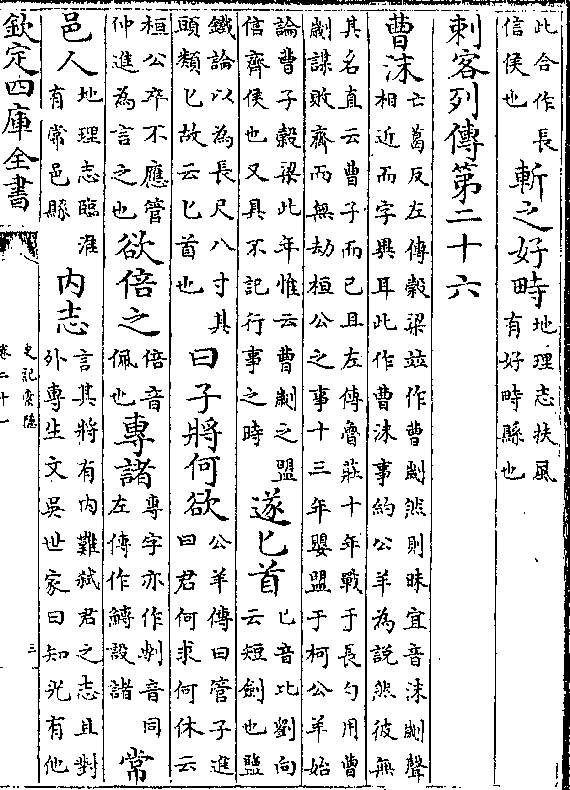 此合作長信侯也斬之好畤地理志扶風有好畤縣也
刺客列傳第二十六
曹沬亡葛反左傳榖梁竝作曹劌然則昧宜音沬劌聲相近而字異耳此作曹沬事約公羊為說然彼無
其名直云曹子而已且左傳魯莊十年戰于長勺用曹劌謀敗齊而無劫桓公之事十三年嬰盟于柯公羊始
論曹子榖梁此年惟云曹劌之盟信齊侯也又具不記行事之時遂匕首匕音比劉向云短劍也鹽
鐵論以為長尺八寸其頭類匕故云匕首也曰子將何欲公羊傳曰管子進曰君何求何休云
桓公卒不應管仲進為言之也欲倍之倍音佩也專諸專字亦作剸音同左傳作鱄設諸常
邑人地理志臨淮有常邑縣內志言其將有內難弑君之志且對外專生文吳世家曰知光有他
欽定四庫全書
史記索隱
卷二十一
三